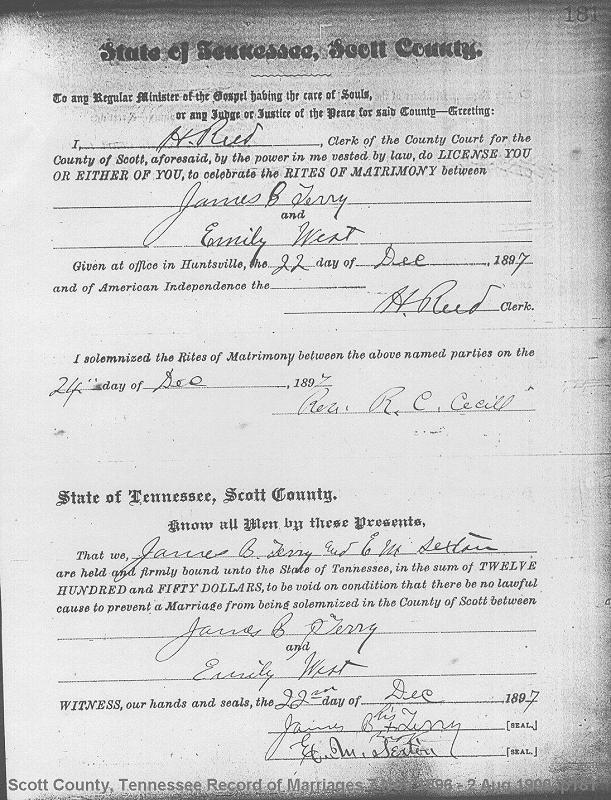 181
State of Tennessee, Scott County.
To any Regular Minister of the Gospel having the care of Souls,
or any Judge or Justice of the Peace for said County—Greeting:
I, H. Reed, Clerk of the County Court for the
County of Scott, aforesaid, by the power in me vested by law, do LICENSE YOU
OR EITHER OF YOU, to celebrate the RITES OF MATRIMONY between
James B Terry
and
Emily West
Given at office in Huntsville, the 22 day of Dec, 1897
and of American Independence the
H. Reed Clerk.
I solemnized the Rites of Matrimony between the above named parties on the
24 day of Dec, 1897
Rev. R. C. Cecill
State of Tennessee, Scott County.
Know all Men by these Presents,
That we, James B. Terry and E M Sexton
are held and firmly bound unto the State of Tennessee, in the sum of TWELVE
HUNDRED and FIFTY DOLLARS, to be void on condition that there be no lawful
cause to prevent a Marriage from being solemnized in the County of Scott between
James B Terry
and
Emily West
WITNESS, our hands and seals, the 22nd day of Dec 1897
his
James B x Terry [SEAL.]
E. M. Sexton [SEAL.]
Scott County, Tennessee Record of Marriages 896 - 2 Aug p181